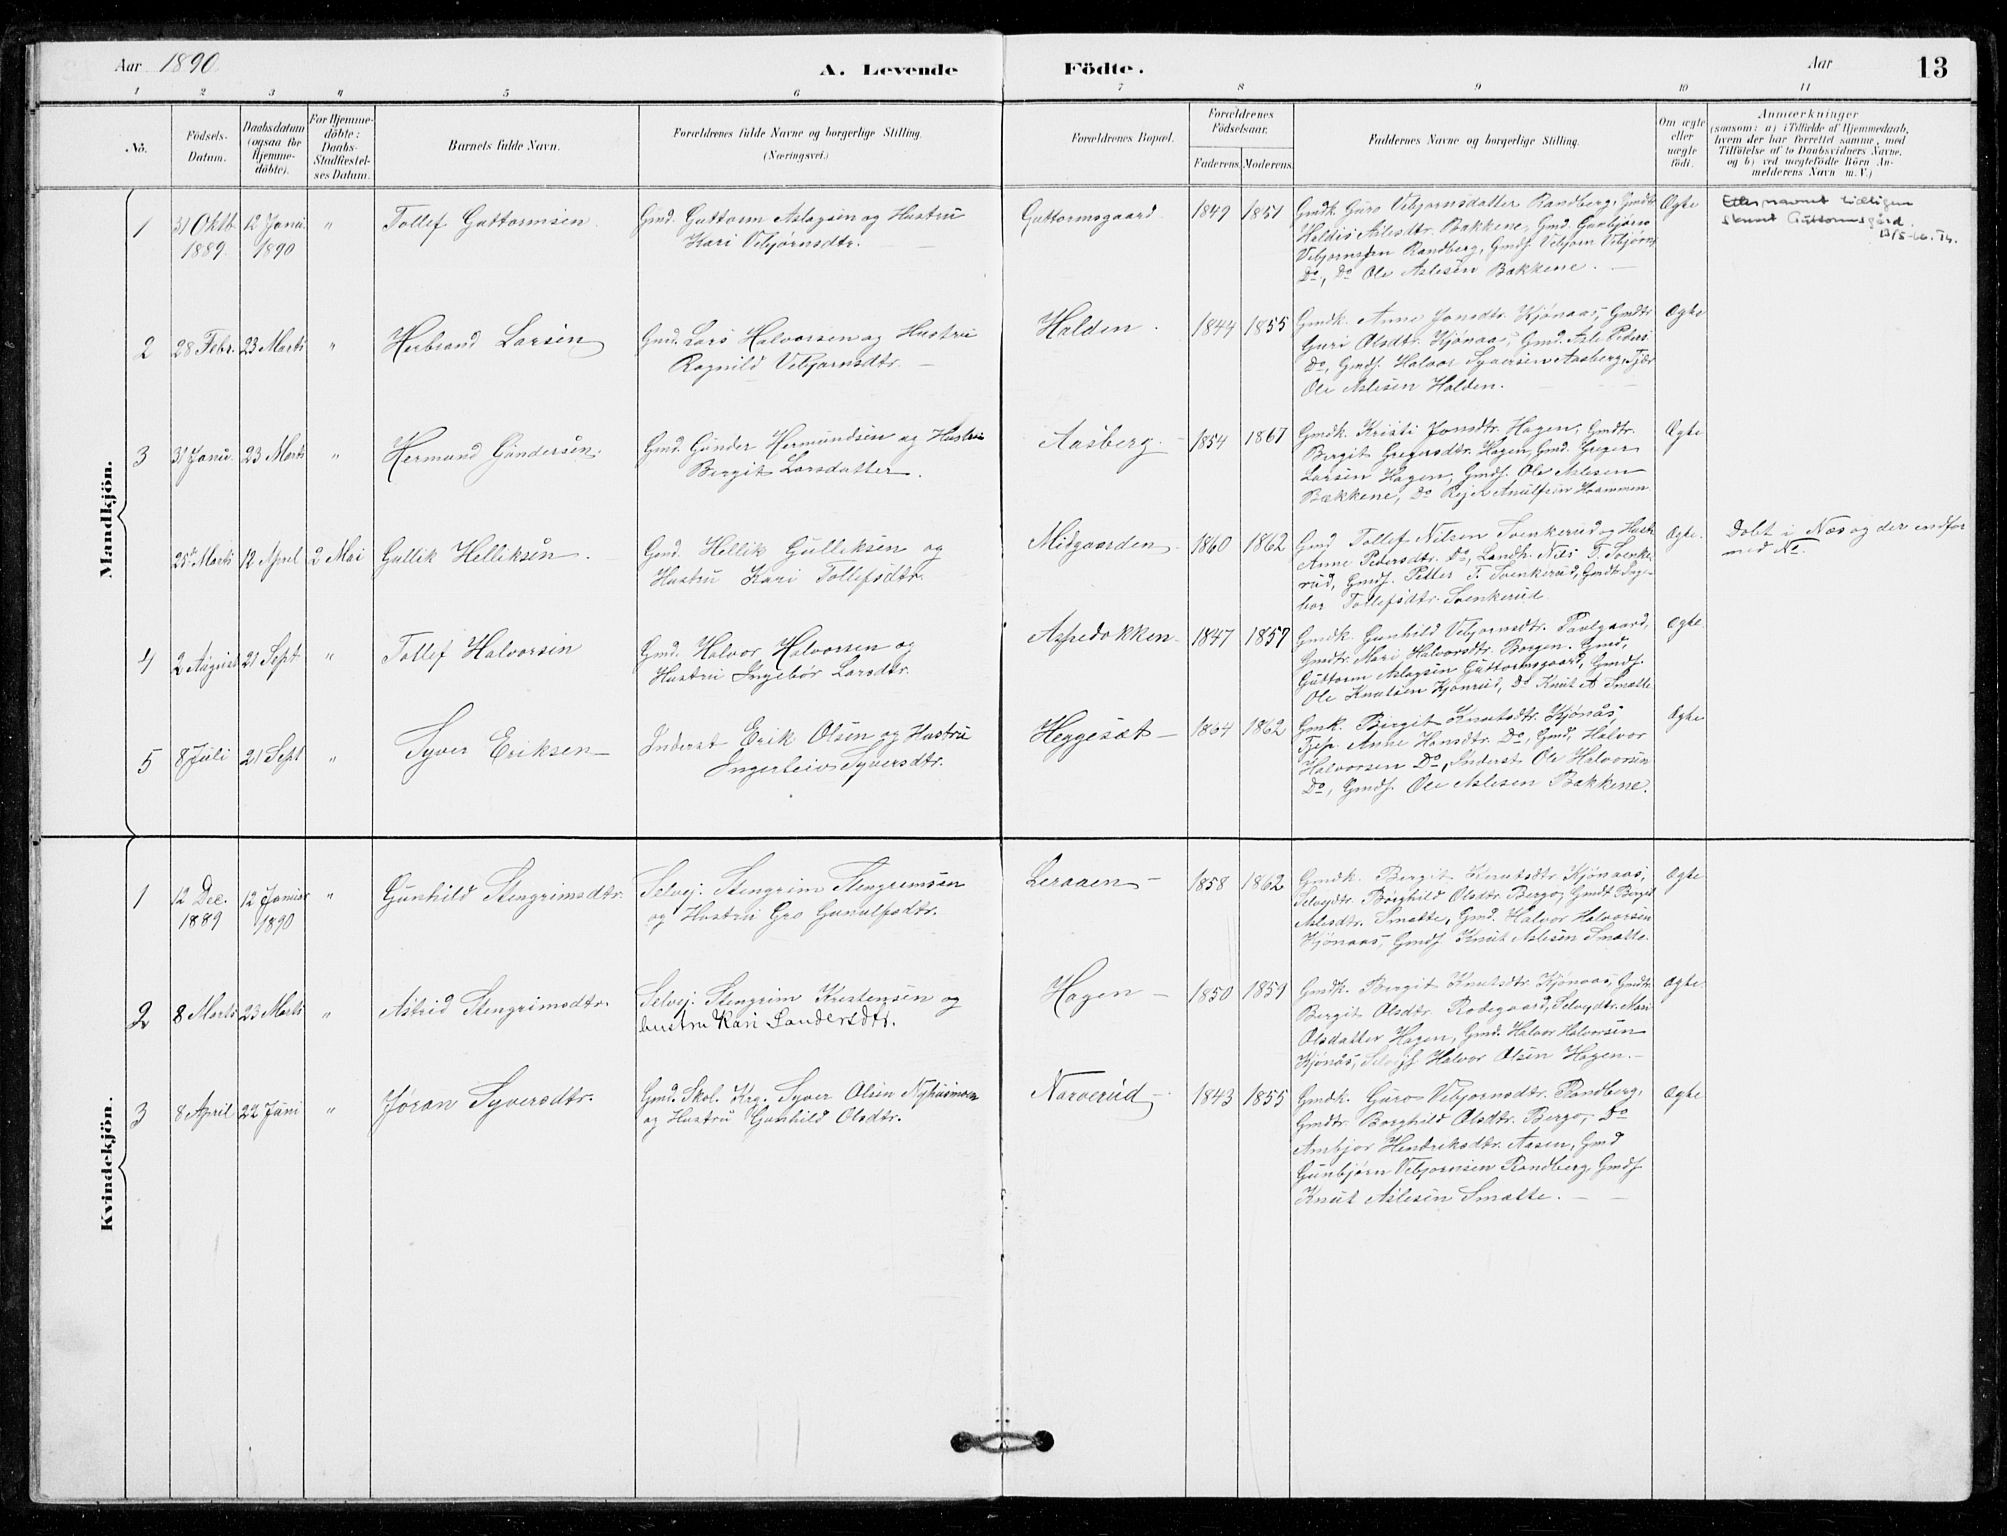 Aar 1890.
A. Levende Födte.
Aar
13
1 2 3 4 5 6 7 8 9 10 11
No.
Födsels-Datum.
Daabsdatum (ogsaa for Hjemme-döbte).
For Hjemme-döbte: Daabs-Stadfæstel-ses Datum.
Barnets fulde Navn.
Forældrenes fulde Navne og borgerlige Stilling. (Næringsvei.)
Forældrenes Bopæl.
Forældrenes Födselsaar.
Faderens. Moderens.
Faddernes Navne og borgerlige Stilling.
Om ægte eller uægte födt.
Anmærkninger
(saasom: a) i Tilfælde af Hjemmedaab,
hvem der har forrettet samme, med
Tilföielse af to Daabsvidners Navne,
og b) ved uægtefödte Börn An-
melderens Navn m. V.)
Mandkjön.
1 31 Oktb. 1889. 12 Janu. 1890 " Tollef Guttormsen
Gmd. Guttorm Aslagsen og Hustru
Kari Vebjørnsdtr.
Guttormsgaard 1849 1851
Gmdk. Guro Vebjørnsdatter Randberg, Gmdtr
Heldis Aslesdtr. Bakkene, Gmd. Gunbjørn
Vebjørnsen Randberg, Gmdf. Vebjørn Vebjørns
Do, Do Ole Aslesen Bakkene.
Ægte
Etternavnet tidligere
skrevet Guttormsgård.
13/5-66.
2 28 Febr. 23 Marts " Herbrand Larsen
Gmd. Lars Halvorsen og Hustru
Ragnild Vebjørnsdtr.
Halden. 1844 1855
Gmdk. Anne Jonsdtr. Kjønaas, Gmdtr
Guri Olsdtr. Kjønaas, Gmd. Asle Peders
Do, Gmdf. Halvor Syversen Aasberg,
Ole Aslesen Halden.
Ægte
3 31 Janu. 23 Marts " Hermand Gundersen.
Gmd. Gunder Hermundsen og Hustru
Bergit Larsdatter.
Aasberg. 1854 1867
Gmdk. Kristi Jonsdtr. Hagen, Gmdtr.
Bergit Gregersdtr. Hagen, Gmd. Greger
Larsen Hagen, Gmdf. Ole Aslesen
Bækkene, Do
Ægte
25 Marts 12 April 2 Mai Gullik Helliksen.
Gmd. Hellik Gulleksen og
Hustru Kari Tollefsdtr.
Midgaarden 1860 1862
Gmd Tollef Nilsen Svenkerud og Hustr
Anne Pedersdtr. Do, Landh. Nils T. Svenke-
rud, Gmdf. Petter T. Svenkerud, Gmdtr Inge-
bor Tollefsdtr. Svenkerud
Ægte.
Døbt i Næs og der indfør
med No.
4 2 August 21 Sept " Tollef Halvorsen
Gmd. Halvor Halvorsen og
Hustru Ingebor Larsdtr.
1847 1857
Gmdk. Gunhild Vebjørnsdtr. Paulgaard,
Gmdtr. Mari Halvorsdtr. Borgen. Gmd,
Guttorm Aslagsen Guttormsgaard, Gmdf.
Ole Knutsen Kjonrud, Do Knut A Smætte.
Ægte
5 8 Juli 21 Sept " Syver Eriksen
Inderst Erik Olsen og Hustru
Ingerleiv Syversdtr.
Heggesæt 1864 1862
Gmk. Birgit Knutsdtr. Kjønås,
Tjep. Anne Hansdtr. Do, Gmd, Halvor
Halvorsen Do, Inderst Ole Halvorsen
Do, Gmdf. Ole Aslesen Bakkene.
Ægte
Kvindekjön.
1 12 Dec. 1889 12 Januar 1890 " Gunhild Stengrimsdtr.
Selvej. Stengrim Stengrimsen
og Hustru Gro Gunulfsdtr.
Leraaen 1858 1862
Gmdk. Bergit Knutsdtr Kjønaas,
Selvejdtr. Borghild Olsdtr. Bergo, Gmdt Bergit
Aslesdtr. Smætte, Gmd. Halvor Halvorsen
Kjønaas, Gmdf Knut Aslesen Smætte.
Ægte
2 8 Marts 23 Marts " Astrid Stengrimsdtr.
Selvej. Stengrim Krestensen og
hustru Kari Sandersdtr.
Hagen 1850 1851
Gmdk. Bergit Knutsdtr Kjønaas, Gmdtr.
Bergit Olsdtr. Rodegaard, Selvejdtr. Mari
Olsdatter Hagen, Gmd. Halvor Halvorsen
Kjønås, Selvejf Halvor Olsen Hagen.
Ægte
3 8 April 22 Juni " Jøran Syversdtr.
Gmd. Skol. Krg. Syver Olsen Nyhusmoen
og Hustru Gunhild Olsdtr.
Narverud 1843 1855
Gmdk. Guro Vebjørnsdtr. Randberg,
Gmdtr Borghild Olsdtr. Bergo, Do
Ambjør Hendriksdtr. Aasen, Gmd
Gunbjørn Vebjørnsen Randberg, Gmdf
Knut Aslesen Smætte.
Ægte